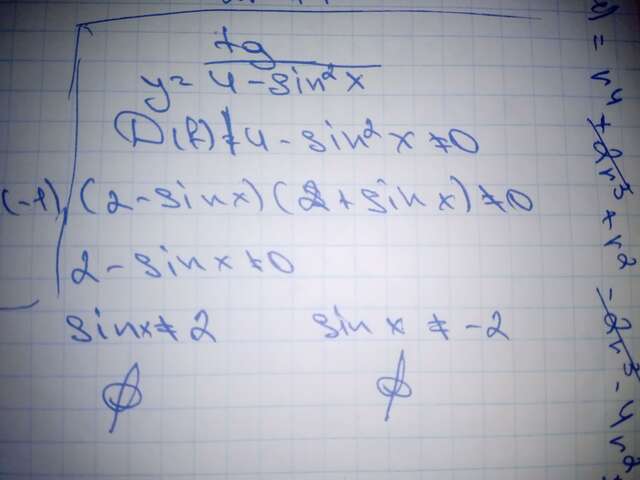 tg
y = 4 - sin²x
D(f) 4 - sin²x ≠ 0
(2 - sinx)(2 + sinx) ≠ 0
2 - sinx ≠ 0
sinx ≠ 2 sin x ≠ -2
∅ ∅
(-1)
= r⁴ + 2r³ + r² - 2r³ - 4r²